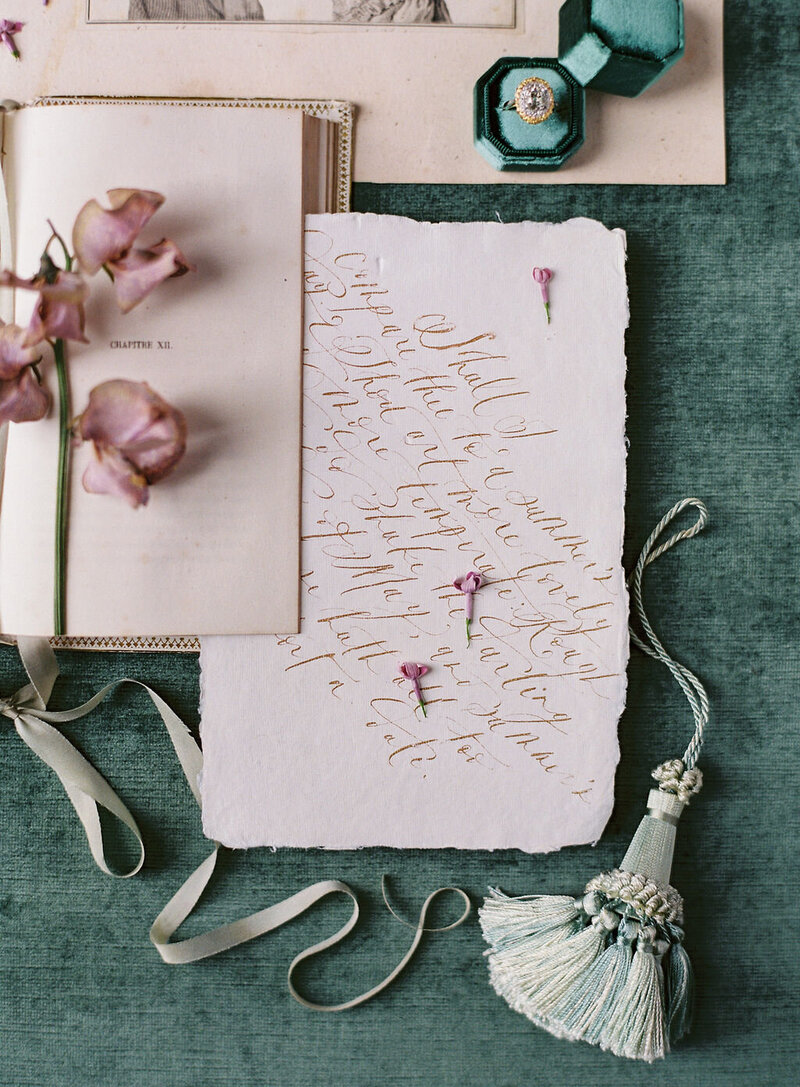 CHAPITRE XII.
Shall I
compare thee to a summer's
day? Thou art more lovely
more temperate: Rough
do shake the darling
of May, and Summer's
hath all too
a date.